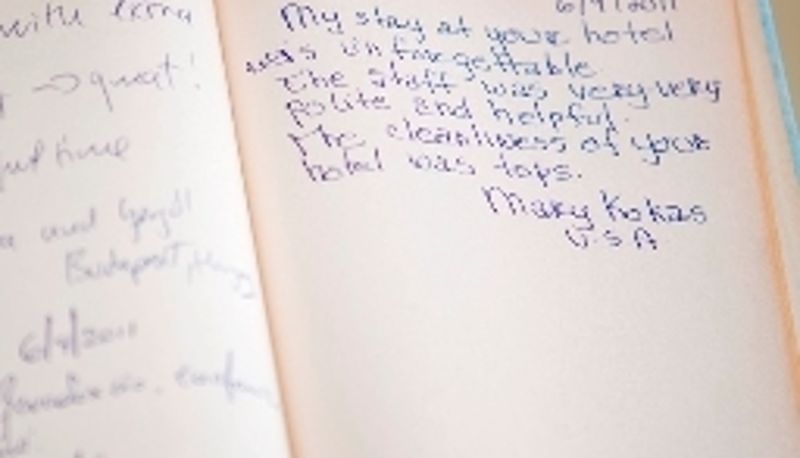 with extra
great!
time
and
Budapest,
6/9/2011
6/9/2011
My stay at your hotel
was unforgettable.
The staff was very very
polite and helpful.
The cleanliness of your
hotel was tops.
Mary Kokas
U.S.A